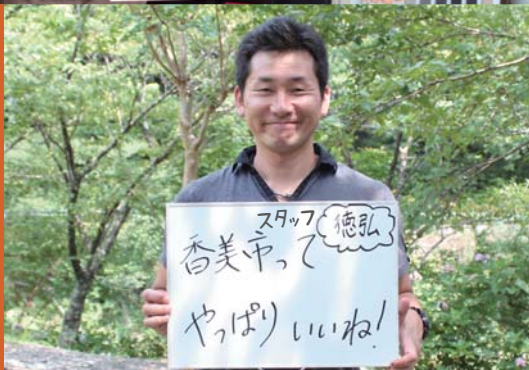 スタッフ 徳弘
香美市って
やっぱりいいね!